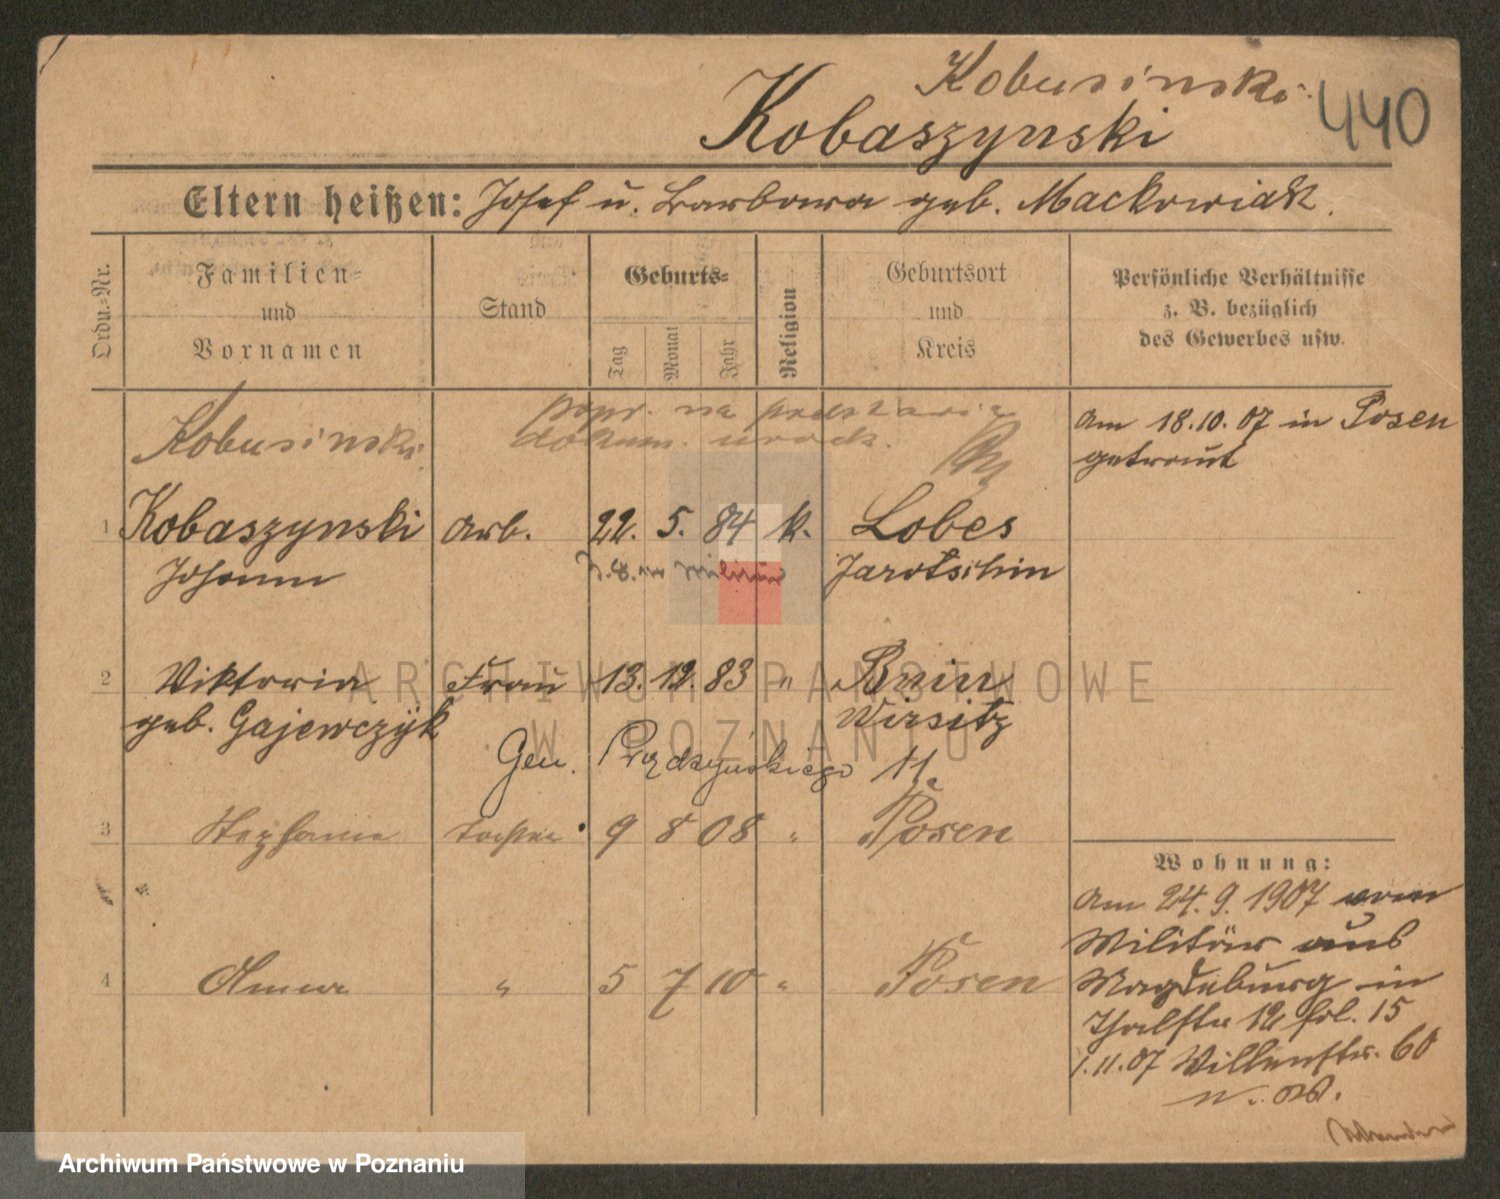 Kobusinski
440
Kobaszynski
Eltern heißen: Josef u. Barbara geb. Mackowiak.
Ordn.-Nr.
Familien-
und
Vornamen
Stand
Geburts-
Tag
Monat
Jahr
Religion
Geburtsort
und
Kreis
Persönliche Verhältnisse
z. B. bezüglich
des Gewerbes usw.
Kobusinski
popr. na podstawie
dokum. urodz.
am 18.10.07 in Posen
getraut
1 Kobaszynski Arb. 22. 5. 84 k. Lobes
Johann Jarotschin
2 Viktoria Frau 13. 12. 83 " Bnin
geb. Gajewczyk Wirsitz
Gen. Prądzyńskiego 11
3 Stephanie Tochter 9 8 08 " Posen
4 " 5 7 10 " Posen
Wohnung:
am 24.9.1907 vom
Militär aus
Magdeburg in
Thalstr 12 fol. 15
1.11.07 60
ARCHIWUM PAŃSTWOWE
W POZNANIU
Archiwum Państwowe w Poznaniu